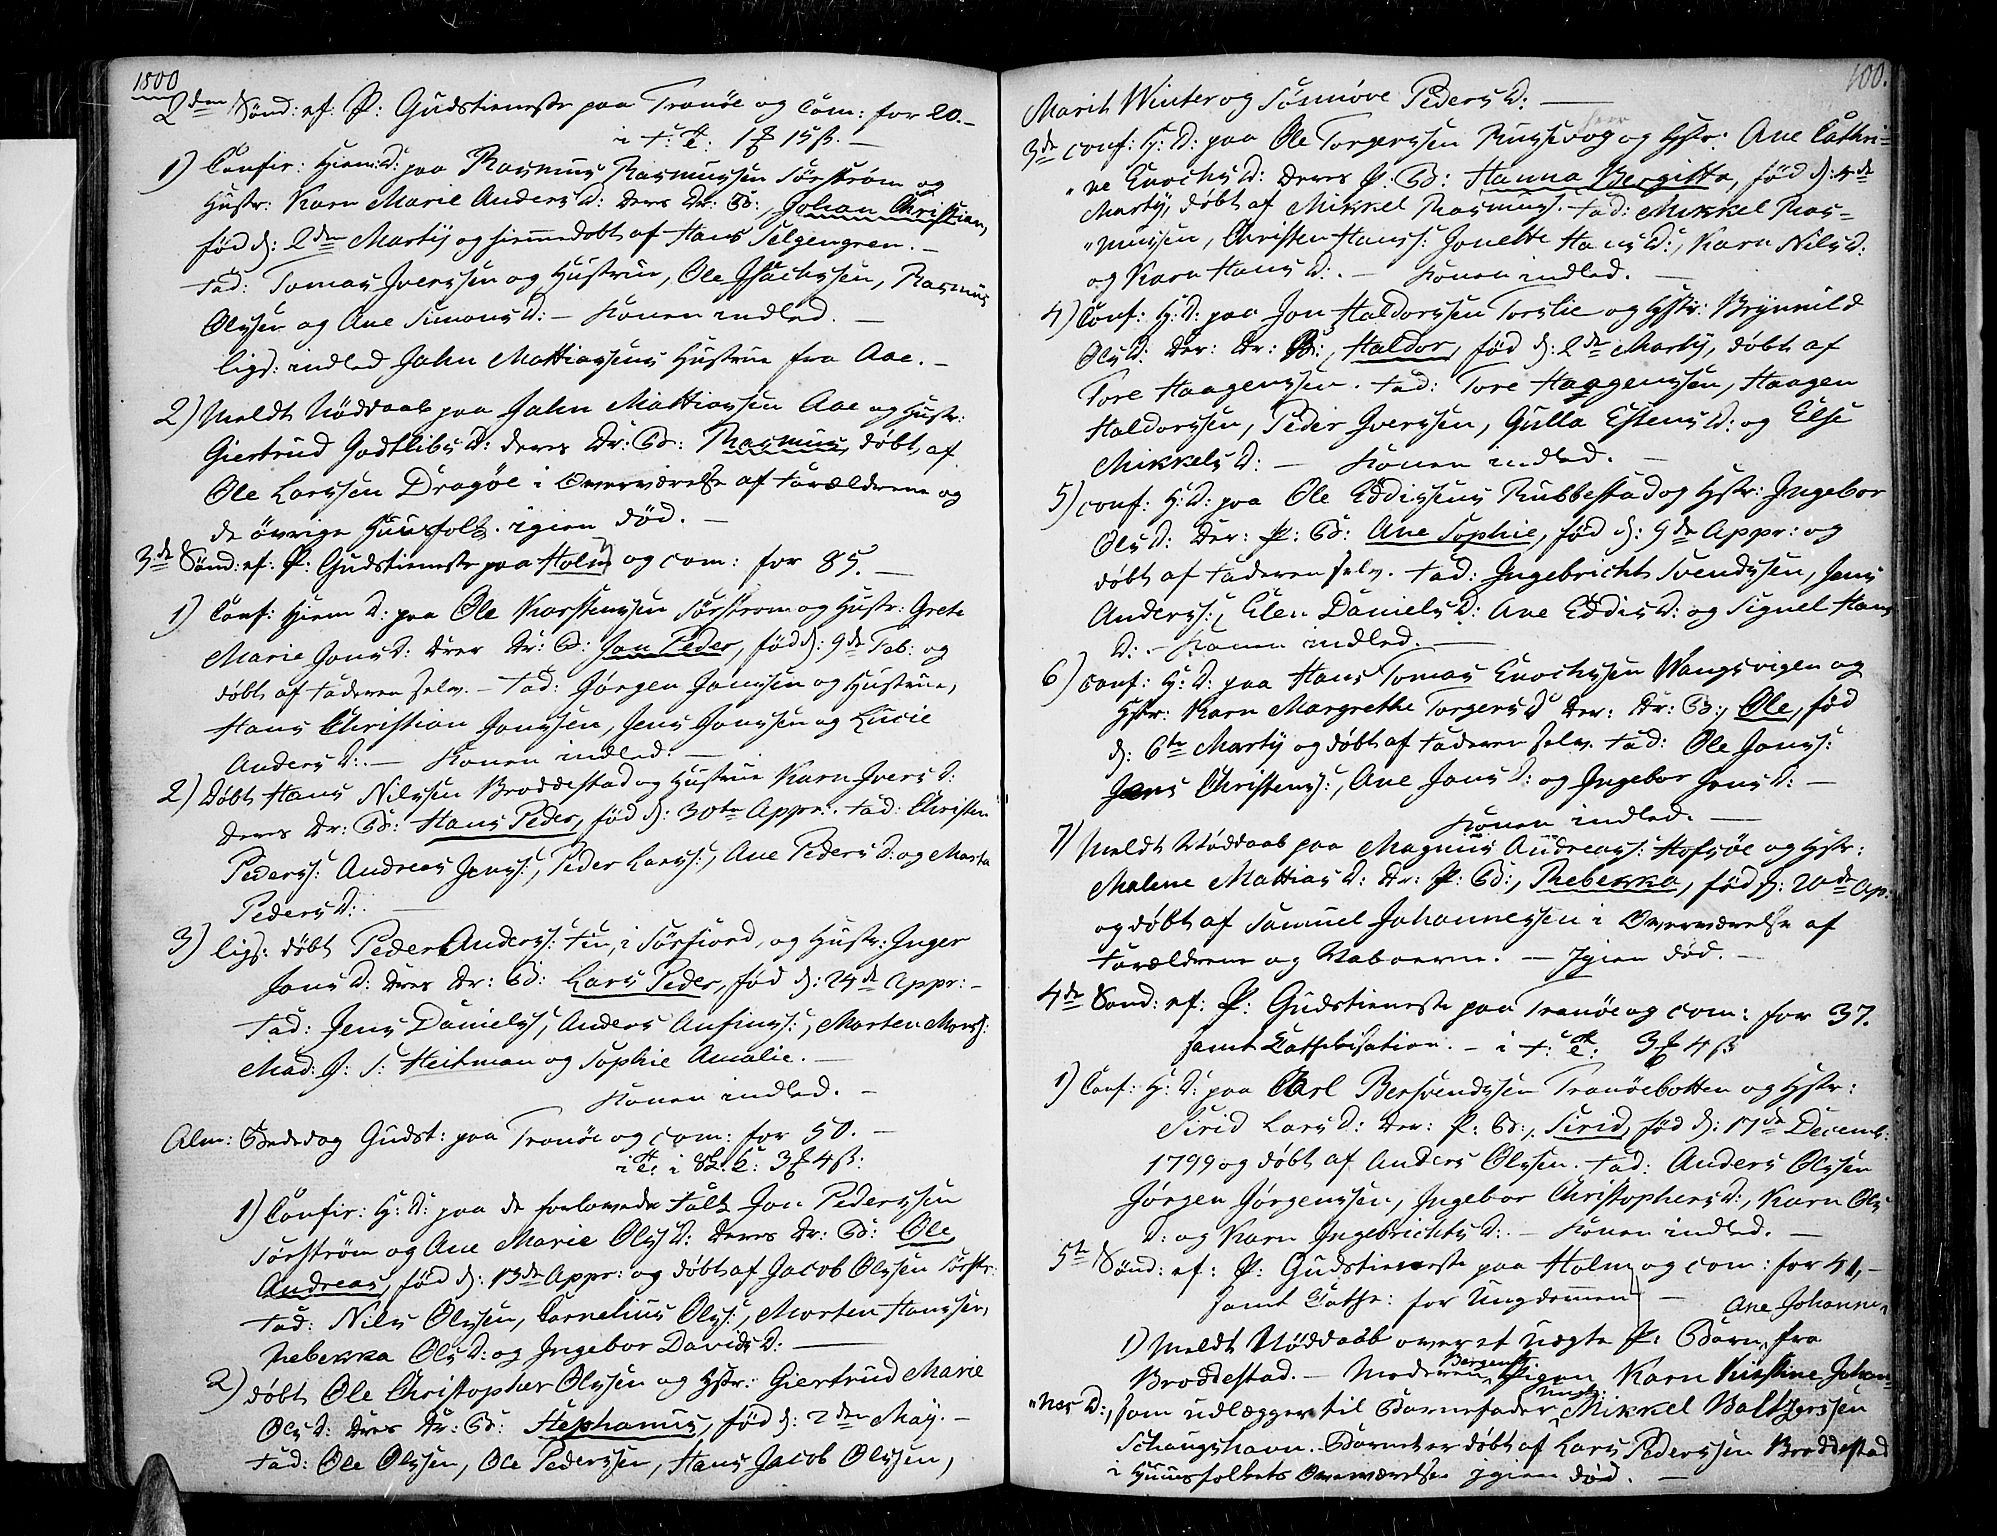 1800
2den Sønd: ef: P: Gudstieneste paa Tranöe og Com: for 20.-
1) Confir: Hiem: D: paa Rasmus Rasmussen Sörström og
Hustr: Karn Marie Anders D: deres Dr: B:, Johan Christian,
föd d: 2den Martij og hiemmedöbt af Hans Selgengren. -
Fad: Tomas Iverssen og Hustrue, Ole Isachssen, Rasmus
Olssen og Ane Simons D: - Konen indled. -
ligs: indled John Mathiassens Hustrue fra Aae. -
2) Meldt Nöddaab paa John Mattiassen Aae og Hustr:
Giertrud Godtlibs D: deres Dr: B: Rasmus, döbt af
Ole Larssen Dragöe i Overværelse af Forældrene og
de övrige Huusfolk. igien död. -
3de Sønd: ef: P: Gudstieneste paa Holm og com: for 85. -
1) Conf: Hiem D: paa Ole Karstenssen Sörström og Hustr: Grete
Marie Jons D: drer Dr: B: Jon Peder, föd d: 9de Feb: og
döbt af Faderen selv. - Fad: Jörgen Jonssen og Hustrue,
Hans Christian Jonssen, Jens Jonssen og Lucie
Anders D: - Konen indled. -
2) Döbt Hans Nilssen Broddestad og Hustrue Karn Ivers D:
deres Dr: B: Hans Peder, föd d: 30te Appr: Fad: Christen
Peders: Andreas Jens:, Peder Lars:, Ane Peders D: og Marta
Peders D: -
3) ligs: döbt Peder Anders: Fin, i Sörfiord, og Hustr: Inger
Jons D: dres Dr: B: Lars Peder, föd d: 24de Appr: -
Fad: Jens Daniels:, Anders Anfins:, Morten Mons:
Mad: J: S: Heitman og Sophie Amalie. -
Konen indled. -
Alm: Bededag Gudst: paa Tranöe og com: for 50. -
1) Confir: H: D: paa de forlovede Folk Jon Pederssen
Sörström og Ane Marie Ols D: deres Dr: B: Ole
Andreas, föd d: 13de Appr: og döbt af Jacob Olssen Sörstr:
Fad: Nils Olssen, Cornelius Ols:, Morten Hanssen,
Rebekka Ols D: og Ingebor Davids D: -
2) döbt Ole Christopher Olssen og Hstr: Giertrud Marie
Ols D: dres Dr: B: Stephanus, föd d: 2den May. -
Fad: Ole Olssen, Ole Pederssen, Hans Jacob Olssen,
100.
Marit Winter og Sönnöve Peders D: -
3de conf: H: D: paa Ole Torgerssen Russevog og Hstr: Ane Cathri-
"ne Enochs D: deres P: B: Hanna Bergitta, föd d: 4de
Martij, döbt af Mikkel Rasmuss. Fad: Mikkel Ras-
"mussen, Christen Hans: Jonette Hans D:, Karn Nils D:
og Karn Hans D: - Konen indled. -
4) Conf: H: D: paa Jon Haldorssen Torslie og Hstr: Brynnild
Ols D: Der: Dr: B:, Haldor, föd d: 2de Martij, döbt af
Tore Haagenssen. Fad: Tore Haagenssen, Haagen
Haldorssen, Peder Iverssen, Gulla Estens D: og Else
Mikkels D: - Konen indled. -
5) conf: H: D: paa Ole Eddissens Rubbestad og Hstr: Ingebor
Ols D: Der: P: B: Ane Sophie, föd d: 9de Appr: og
döbt af Faderen selv. Fad: Ingebricht Svendssen, Jens
Anders:, Elen Daniels D: Ane Eddis D: og Signel Hans
D: - Konen indled. -
6) conf: H: D: paa Hans Tomas Enochssen Wangsvigen og
Hstr: Karn Margrethe Torgers D Der: Dr: B:, Ole, föd
d: 6te Martij og döbt af Faderen selv. Fad: Ole Jons:
Jens Christens:, Ane Jons D: og Ingebor Jens D: -
Konen indled. -
7) Meldt Nöddaab paa Magnus Andreas: Hofsöe og Hstr:
Malene Mattias D: Dr: P: B:, Rebekka, föd d: 20de Ap:
og döbt af Samuel Johannessen i Overværelse af
Forældrene og Naboerne. - Igien död. -
4de Sønd: ef: P: Gudstieneste paa Tranöe og com: for 37.
samt Cathekisation. -
1) Conf: H: D: paa Carl Bersvendssen Tranöebotten og Hstr:
Sirid Lars D: Der: P: B:, Sirid, föd d: 17de Decemb:
1799 og döbt af Anders Olssen. Fad: Anders Olssen
Jörgen Jörgenssen, Ingebor Christophers D:, Karn Ols
D: og Karn Ingebrichts D: - Konen indled. -
5te Sønd: ef: P: Gudstieneste paa Holm og com: for 41, -
samt Cathe: for Ungdommen -
Ane Johanne,
1) Meldt Nöddaab over et Uægte P: Barn, fra
Broddestad. - Moderen Pigen Karn Kirstine Johan-
"nes D:, som udlægger til Barnefader Mikkel Baltzerssen
Schougshavn. Barnet er döbt af Lars Pederssen Broddestad
i Huusfolkets Overværelse igien död. -